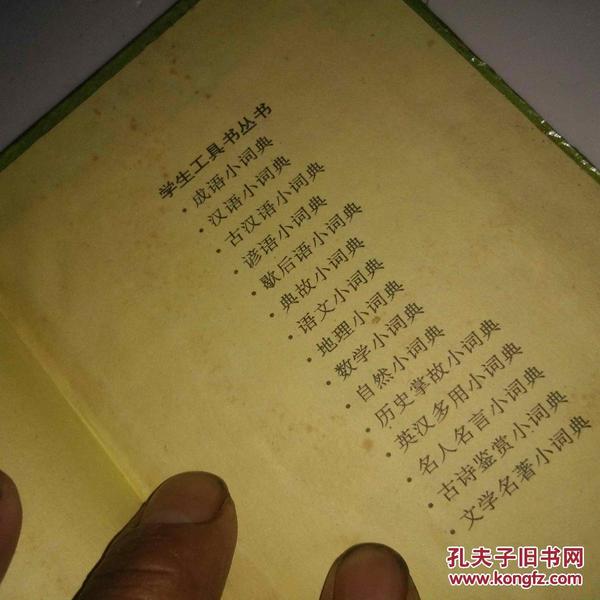 学生工具书丛书
·成语小词典
·汉语小词典
·古汉语小词典
·谚语小词典
·歇后语小词典
·典故小词典
·语文小词典
·地理小词典
·数学小词典
·自然小词典
·历史掌故小词典
·英汉多用小词典
·名人名言小词典
·古诗鉴赏小词典
·文学名著小词典
孔夫子旧书网
www.kongfz.com